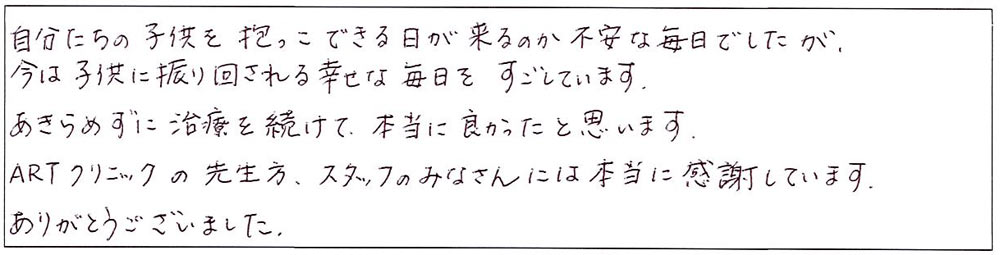 自分たちの子供を抱っこできる日が来るのか不安な毎日でしたが、
今は子供に振り回される幸せな毎日をすごしています。
あきらめずに治療を続けて、本当に良かったと思います。
ARTクリニックの先生方、スタッフのみなさんには本当に感謝しています。
ありがとうございました。